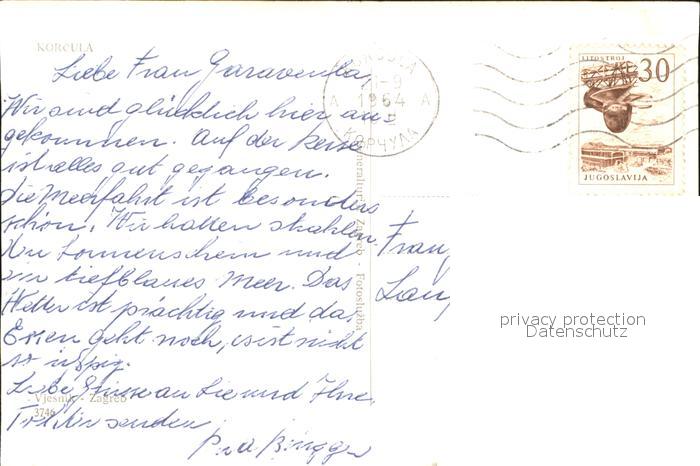 KORČULA
Liebe Frau Garaventa,
Wir sind glücklich hier an
gekommen. Auf der Reise
ist alles gut gegangen.
Die Meerfahrt ist besonders
schön. Wir hatten strahlen
den Sonnenschein und
ein tiefblaues Meer. Das
Wetter ist prächtig und das
Essen geht noch, es ist nicht
so üppig.
Liebe Grüsse an Sie und Ihre
senden
Vjesnik - Zagreb
3746
Zagreb - Fotoslužba
KORČULA
-9
A 1964 A
КОРЧУЛА
LITOSTROJ
30
JUGOSLAVIJA
Frau
privacy protection
Datenschutz